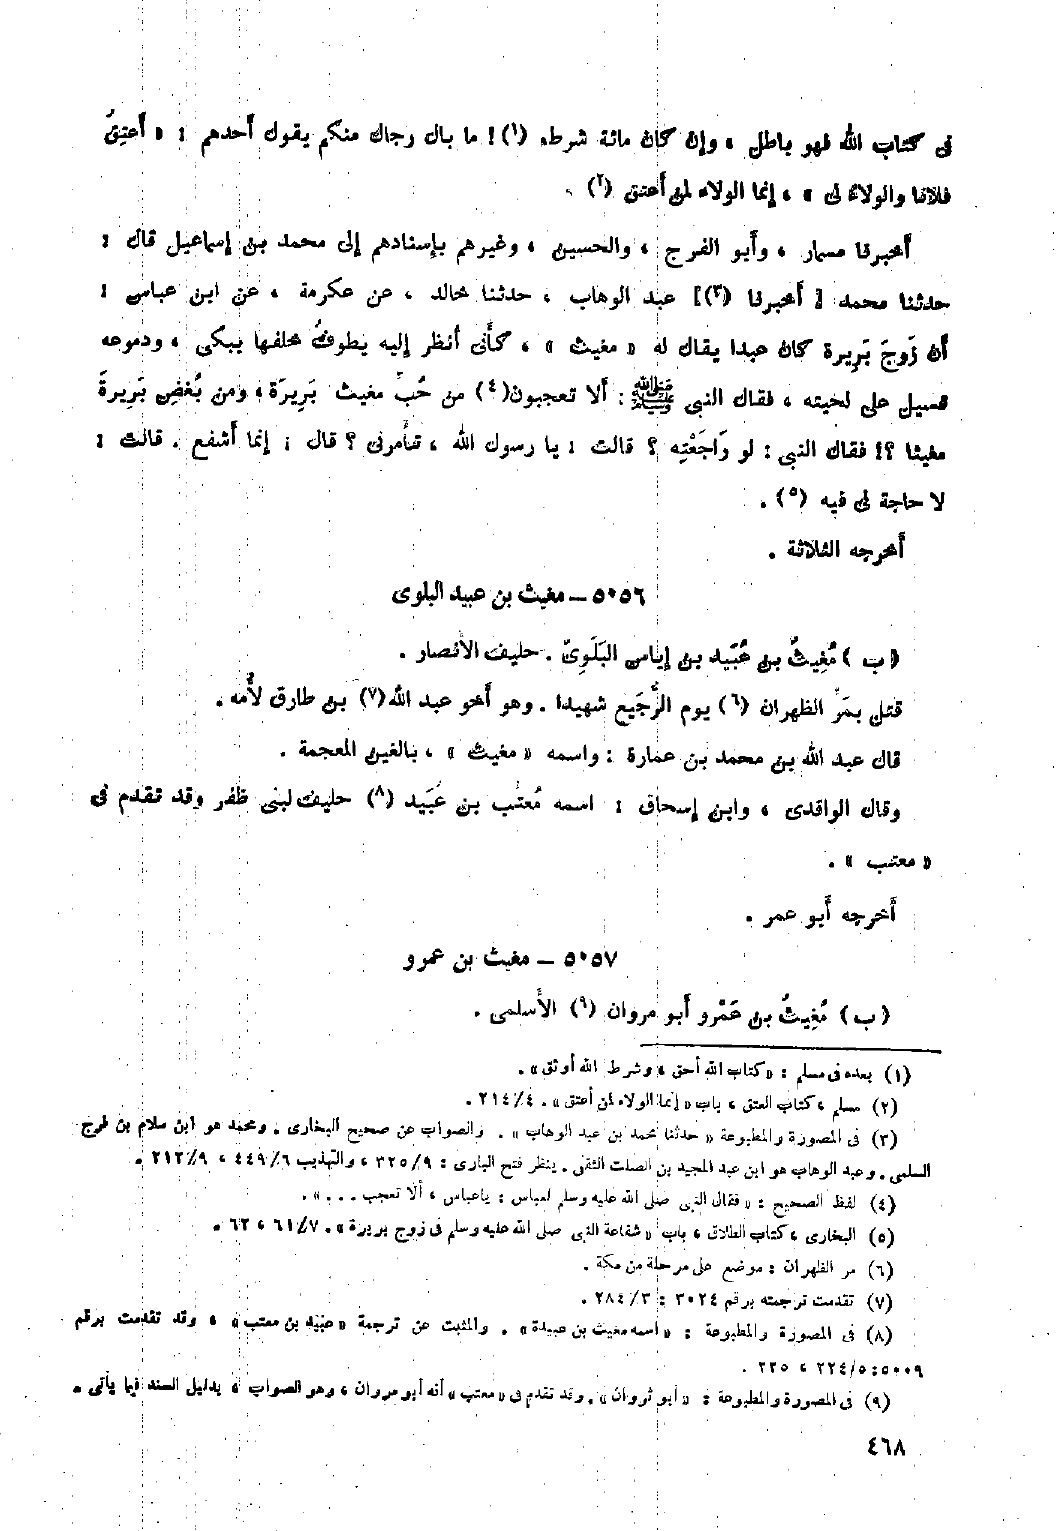 فى كتاب الله فهو باطل ، وإن كان مائة شرط، (١)! ما بال رجال منكم يقول أحدهم : « أَعتِقُ
فلانا والولاءُ لى » ، إنما الولاء لمن أعتق (٢) .
أخبرنا مسمار ، وأبو الفرج ، والحسين ، وغيرهم بإسنادهم إلى محمد بن إسماعيل قال :
حدثنا محمد [ أخبرنا (٣)] عبد الوهاب ، حدثنا خالد ، عن عكرمة ، عن ابن عباس :
أن زَوجَ بَرِيرة كان عبدا يقال له « مغيث » ، كأَنى أنظر إليه يطوفُ خلفها يبكى ، ودموعه
تسيل على لحيته ، فقال النبى ﷺ : ألا تعجبون(٤) من حُبِّ مغيث بَرِيرَة ، ومن بُغضِ بَرِيرةَ
مغيثا ؟! فقال النبى : لو رَاجَعْتِه ؟ قالت : يا رسول الله ، تأمرنى ؟ قال : إنما أشفع . قالت :
لا حاجة لى فيه (٥) .
أخرجه الثلاثة .
٥٠٥٦ – مغيث بن عبيد البلوى
(ب) مُغِيثُ بن عُبَيد بن إياس البَلَوِىّ . حليف الأنصار .
قتل بمَرِّ الظهران (٦) يوم الرَّجِيع شهيدا . وهو أخو عبد الله(٧) بن طارق لأُمه .
قال عبد الله بن محمد بن عمارة : واسمه « مغيث » ، بالغين المعجمة .
وقال الواقدى ، وابن إسحاق : اسمه مُعتِّب بن عُبَيد (٨) حليف لبنى ظفر وقد تقدم فى
« معتب » .
أخرجه أبو عمر .
٥٠٥٧ – مغيث بن عمرو
(ب) مُغِيثُ بن عَمْرو أبو مروان (٩) الأسلمى .
(١) بعده فى مسلم : «كتاب الله أحق ، وشرط الله أوثق» .
(٢) مسلم ، كتاب العتق ، باب « إنما الولاء لمن أعتق » . ٢١٤/٤ .
(٣) فى المصورة والمطبوعة « حدثنا محمد بن عبد الوهاب » . والصواب عن صحيح البخارى . ومحمد هو ابن سلام بن فرج
السلمى . وعبد الوهاب هو ابن عبد المجيد بن الصلت الثقفى . ينظر فتح البارى : ٣٢٥/٩ ، والتهذيب ٤٤٩/٦ ، ٢١٢/٩ .
(٤) لفظ الصحيح : « فقال النبى صلى الله عليه وسلم لعباس : ياعباس ، ألا تعجب ... » .
(٥) البخارى ، كتاب الطلاق ، باب « شفاعة النبى صلى الله عليه وسلم فى زوج بريرة » . ٦١/٧ ، ٦٢ .
(٦) مر الظهران : موضع على مرحلة من مكة .
(٧) تقدمت ترجمته برقم ٣٠٢٤ : ٢٨٤/٣ .
(٨) فى المصورة والمطبوعة : « اسمه مغيث بن عبيدة » . والمثبت عن ترجمة « عبيد بن معتب » ، وقد تقدمت برقم
٥٠٠٩ : ٢٢٤/٥ ، ٢٢٥ .
(٩) فى المصورة والمطبوعة : « أبو ثروان » . وقد تقدم فى « معتب » أنه أبو مروان ، وهو الصواب ، بدليل السند فيما يأتى .
٤٦٨